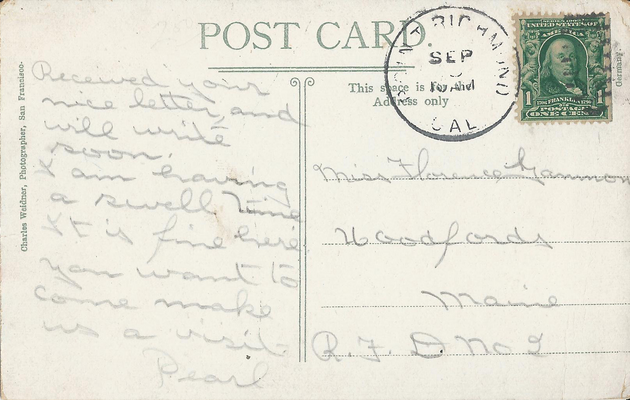 POST CARD
This space is for the
Address only
Charles Weidner, Photographer, San Francisco.
Germany.
POINT RICHMOND
SEP
10 AM
CAL.
SERIES 1902
UNITED STATES OF
AMERICA
1 1706 FRANKLIN 1790 1
POSTAGE
ONE CENT
Received your
nice letter, and
will write
soon.
I am having
a swell time
It is fine here
you want to
come make
us a visit
Pearl
Miss Florence Gammon
Woodfords
Maine
R. F. D No 2